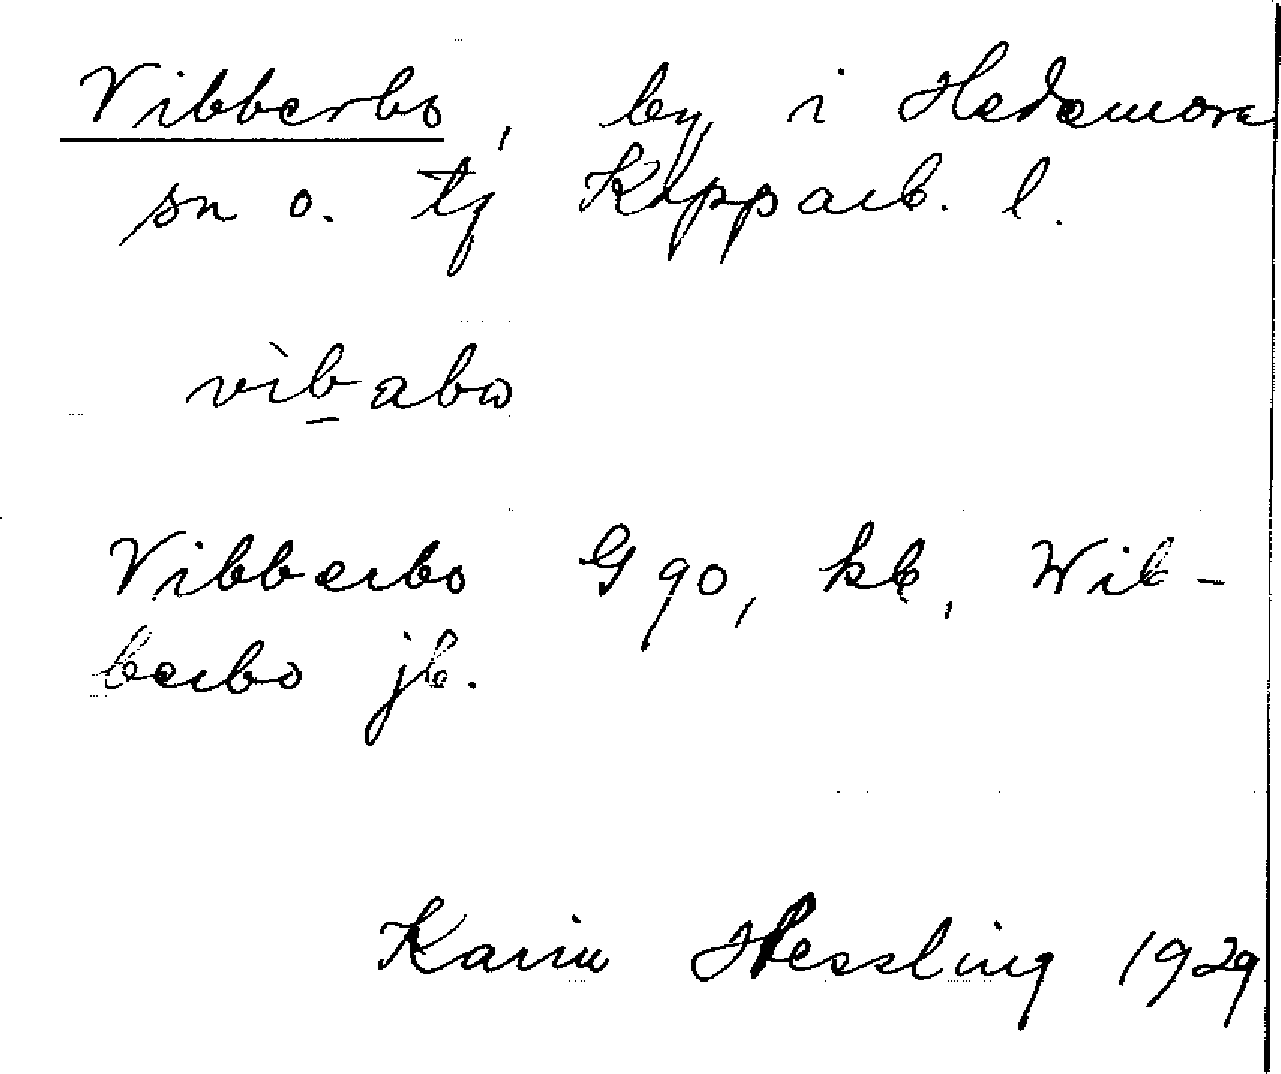 Vibberbo, by i Hedemora
sn o. tg Kopparb. l.
vìb̲abω
Vibberbo G 90, kb, Wib-
berbo jb.
Karin Hessling 1929